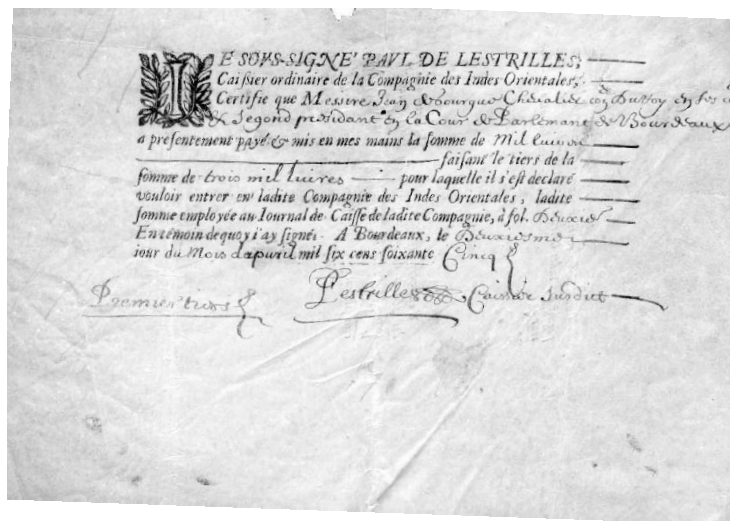 IE SOVS-SIGNÉ PAVL DE LESTRILLES,
Caissier ordinaire de la Compagnie des Indes Orientales,
Certifie que Messire Jean de bourque Chevalier con Du Roy en ses
& segond presidant en la Cour de Parlemant de Bourdeaux
a presentement payé & mis en mes mains la somme de Mil livres
faisant le tiers de la
somme de trois mil livres pour laquelle il s'est declaré
vouloir entrer en ladite Compagnie des Indes Orientales, ladite
somme employée au Iournal de Caisse de ladite Compagnie, à fol. Deuxie
En témoin de quoy i'ay signé. A Bourdeaux, le Deuxiesme
iour du Mois dapvril mil six cens soixante Cincq
Premier tiers
Lestrilles Caissier susdict